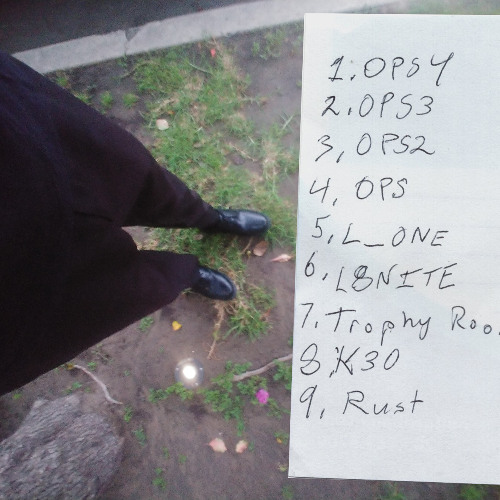 1. OPS4
2. OPS3
3, OPS2
4, OPS
5, L_ONE
6, L8NITE
7, Trophy Roo
8, K30
9, Rust